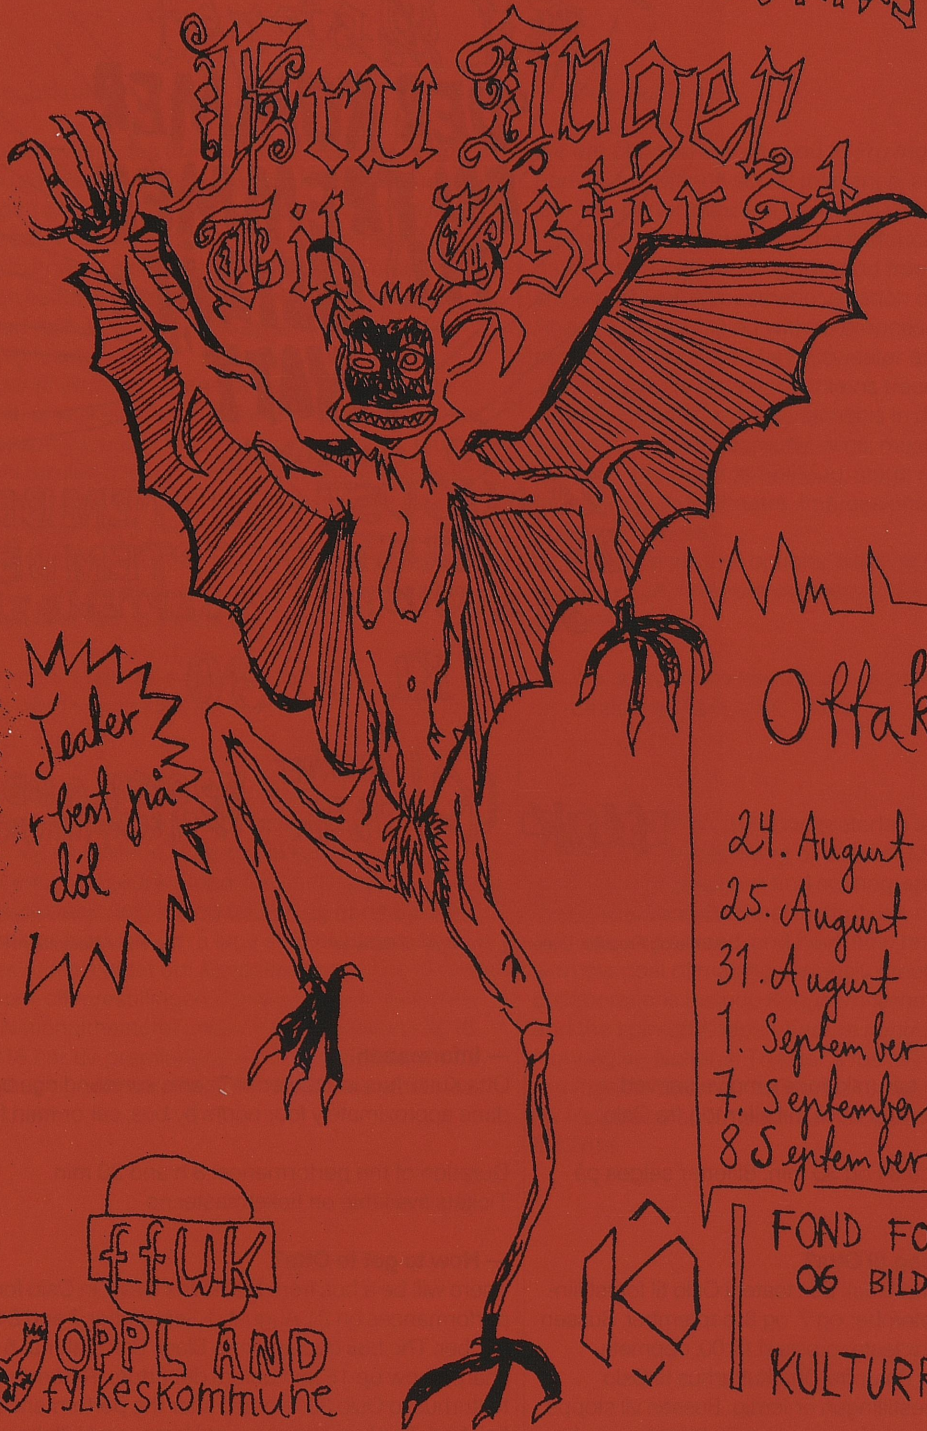 Fru Inger
Til Østeråt
Teater
best på
dól
Ottak
24. August
25. August
31. August
1. September
7. September
8 September
ffUK
OPPLAND
fylkeskommune
K
FOND FO
OG BILD
KULTURR